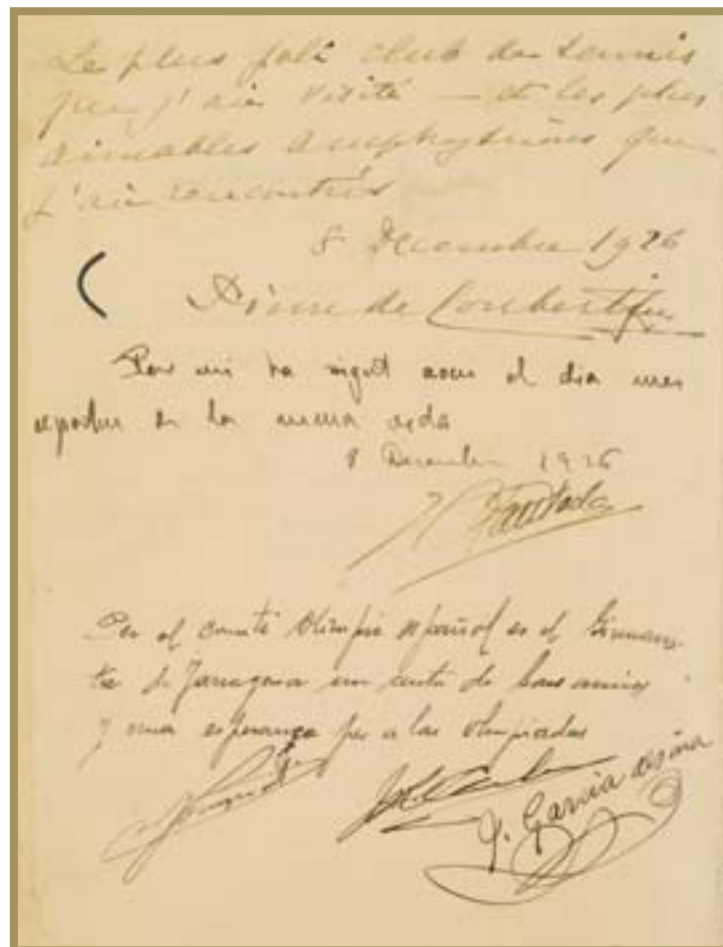 Le plus joli club de tennis
que j'aie visité — et les plus
aimables amphytrions que
j'aie rencontrés
8 Decembre 1926
Pierre de Coubertin
Per mi ha sigut avui el dia mes
de la meva vida
8 Desembre 1926
Per el comité Olimpic español es el Gimnas-
tic de Tarragona un centre de bons amics
y una esperança per a las olimpiadas
J. Garcia Alsina